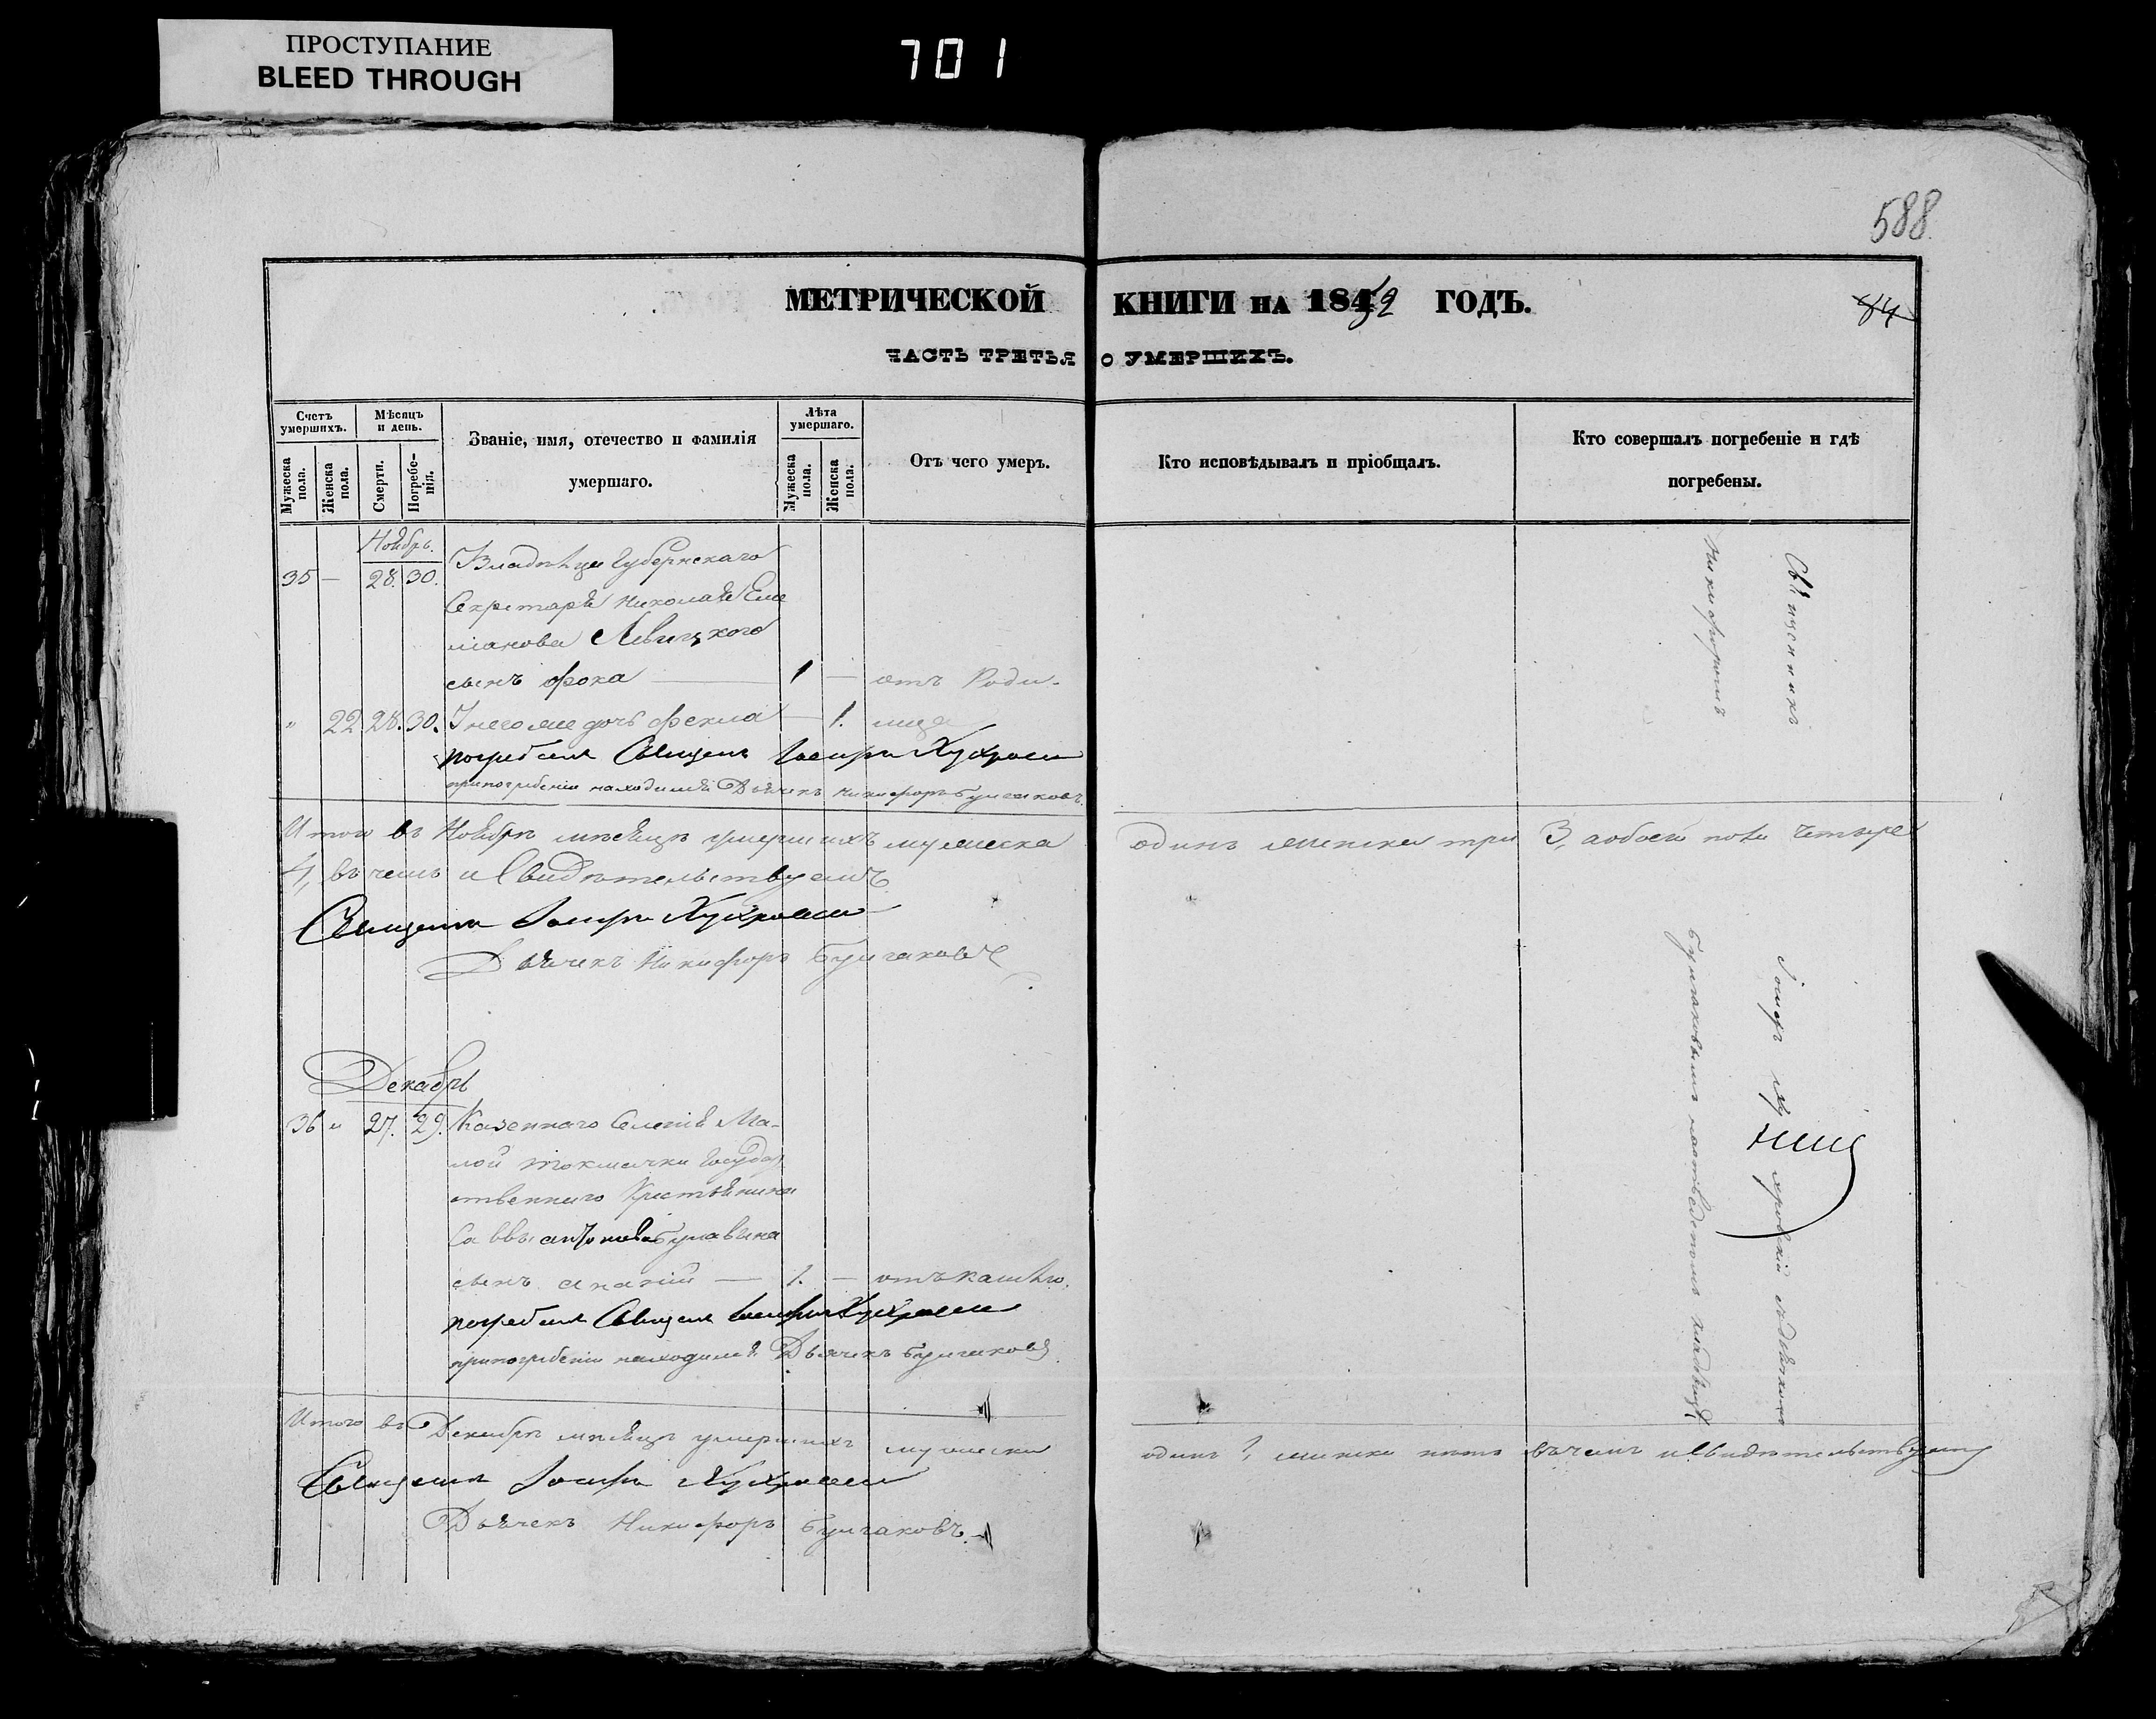 ПРОСТУПАНИЕ
BLEED THROUGH
701
588.
МЕТРИЧЕСКОЙ КНИГИ на 1852 ГОДЪ.
84
ЧАСТЬ ТРЕТЬЯ О УМЕРШИХЪ.
Счетъ умершихъ.
Мѣсяцъ и день.
Званіе, имя, отечество и фамилія умершаго.
Лѣта умершаго.
Отъ чего умеръ.
Кто исповѣдывалъ и пріобщалъ.
Кто совершалъ погребеніе и гдѣ погребены.
Мужеска пола.
Женска пола.
Смерти.
Погребенія.
Мужеска пола.
Женска пола.
Ноябрь.
35 — 28. 30. Владѣльца Губернскаго
Секретаря Николая Еме
лианова Левицкого
сынъ Фока — 1 — отъ Роди-
" 22 28. 30. У него же дочь Фекла — 1. мца
погребалъ Священ Іосифъ
при погребеніи находился Дьячекъ Никифоръ Булгаковъ.
Итого въ Ноябрѣ мѣсяцѣ умершихъ мужеска одинъ женска три 3, а обоего пола четыре
4, въ чемъ и Свидѣтельствуемъ
Священникъ Іосифъ
Дьячекъ Никифоръ Булгаковъ
Декабрь
36 " 27. 29. Казеннаго Селенія Ма-
лой Токмачки Государ
ственнаго Крестьянина
Саввы Антонова Булавина
сынъ Ананій — 1. — отъ кашлю.
погребалъ Священ Іосифъ
при погребеніи находился Дьячекъ Булгаковъ
Итого въ Декабрѣ мѣсяцѣ умершихъ мужеска одинъ 1, женска въ чемъ и Свидѣтельствуемъ
Священникъ Іосифъ
Дьячекъ Никифоръ Булгаковъ.
Священникъ Іосифъ съ дьячкомъ
Никифоромъ Булгаковымъ на отведенномъ кладбищѣ